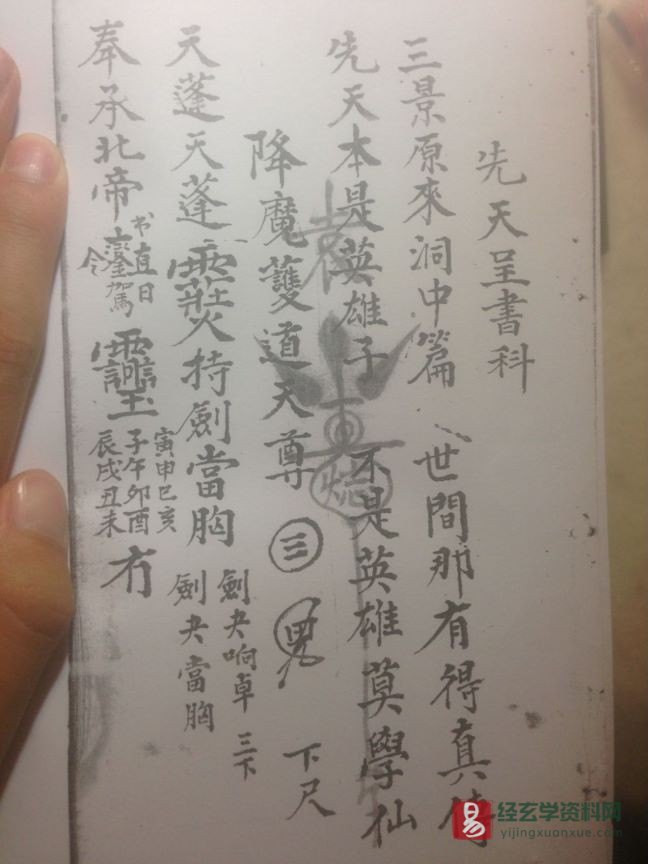 先天呈書科
三景原來洞中篇 世間那有得真傳
先天本是英雄子 不是英雄莫學仙
降魔護道天尊 三 下尺
天蓬天蓬 持劍當胸 劍夬响卓三下 劍夬當胸
奉承北帝 书直日 令 駕 寅申巳亥 子午卯酉 辰戌丑未 冇
易 经玄学资料网
yijingxuonxue.com